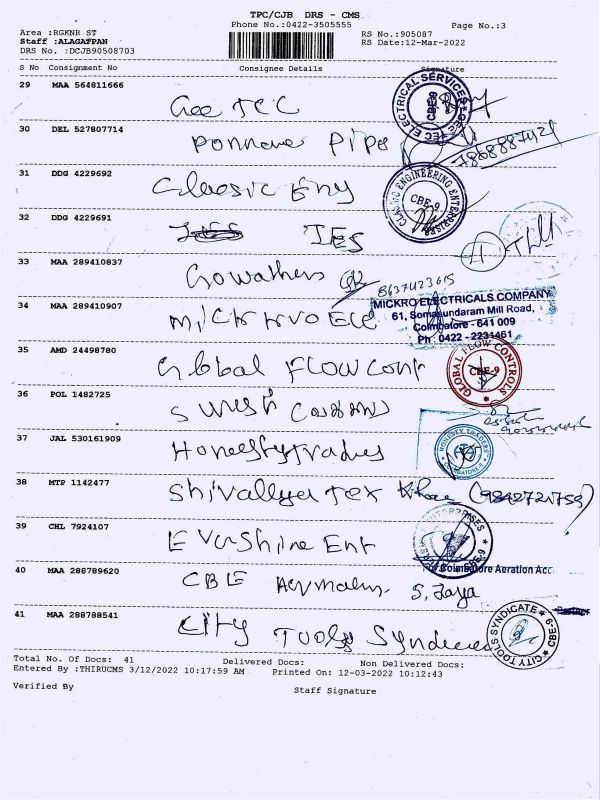 TPC/CJB DRS - CMS
Phone No.:0422-3505555
Page No.:3
Area :RGKNR ST
Staff :ALAGAPPAN
DRS No. :DCJB90508703
RS No.:905087
RS Date:12-Mar-2022
S No Consignment No Consignee Details Signature
29 MAA 564811666
Gee TEC
ELECTRICAL SERVICES
CBE-9
30 DEL 527807714
Ponnave Pipe
31 DDG 4229692
Classic Eng
CLASSIC ENGINEERING ENTERPRISES
CBE-9
32 DDG 4229691
IES
33 MAA 289410837
Gowathers
8637423615
34 MAA 289410907
Mickrvo Ele
MICKRO ELECTRICALS COMPANY
61, Somasundaram Mill Road,
Coimbatore - 641 009
Ph : 0422 - 2231461
35 AMD 24498780
Global Flow Cont
GLOBAL FLOW CONTROLS
CBE-9
36 POL 1482725
Suresh
37 JAL 530161909
Honesty Trades
HONESTY TRADERS
38 MTP 1142477
Shivallya Tex (9842721755)
39 CHL 7924107
Evershine Ent
ENTERPRISES
CBE-9
40 MAA 288789620
CBE S. Jaya
Coimbatore Aeration Acc
41 MAA 288788541
City Tools Syndicate
CITY TOOLS SYNDICATE
CBE-9
Total No. Of Docs: 41 Delivered Docs: Non Delivered Docs:
Entered By :THIRUCMS 3/12/2022 10:17:59 AM Printed On: 12-03-2022 10:12:43
Verified By Staff Signature